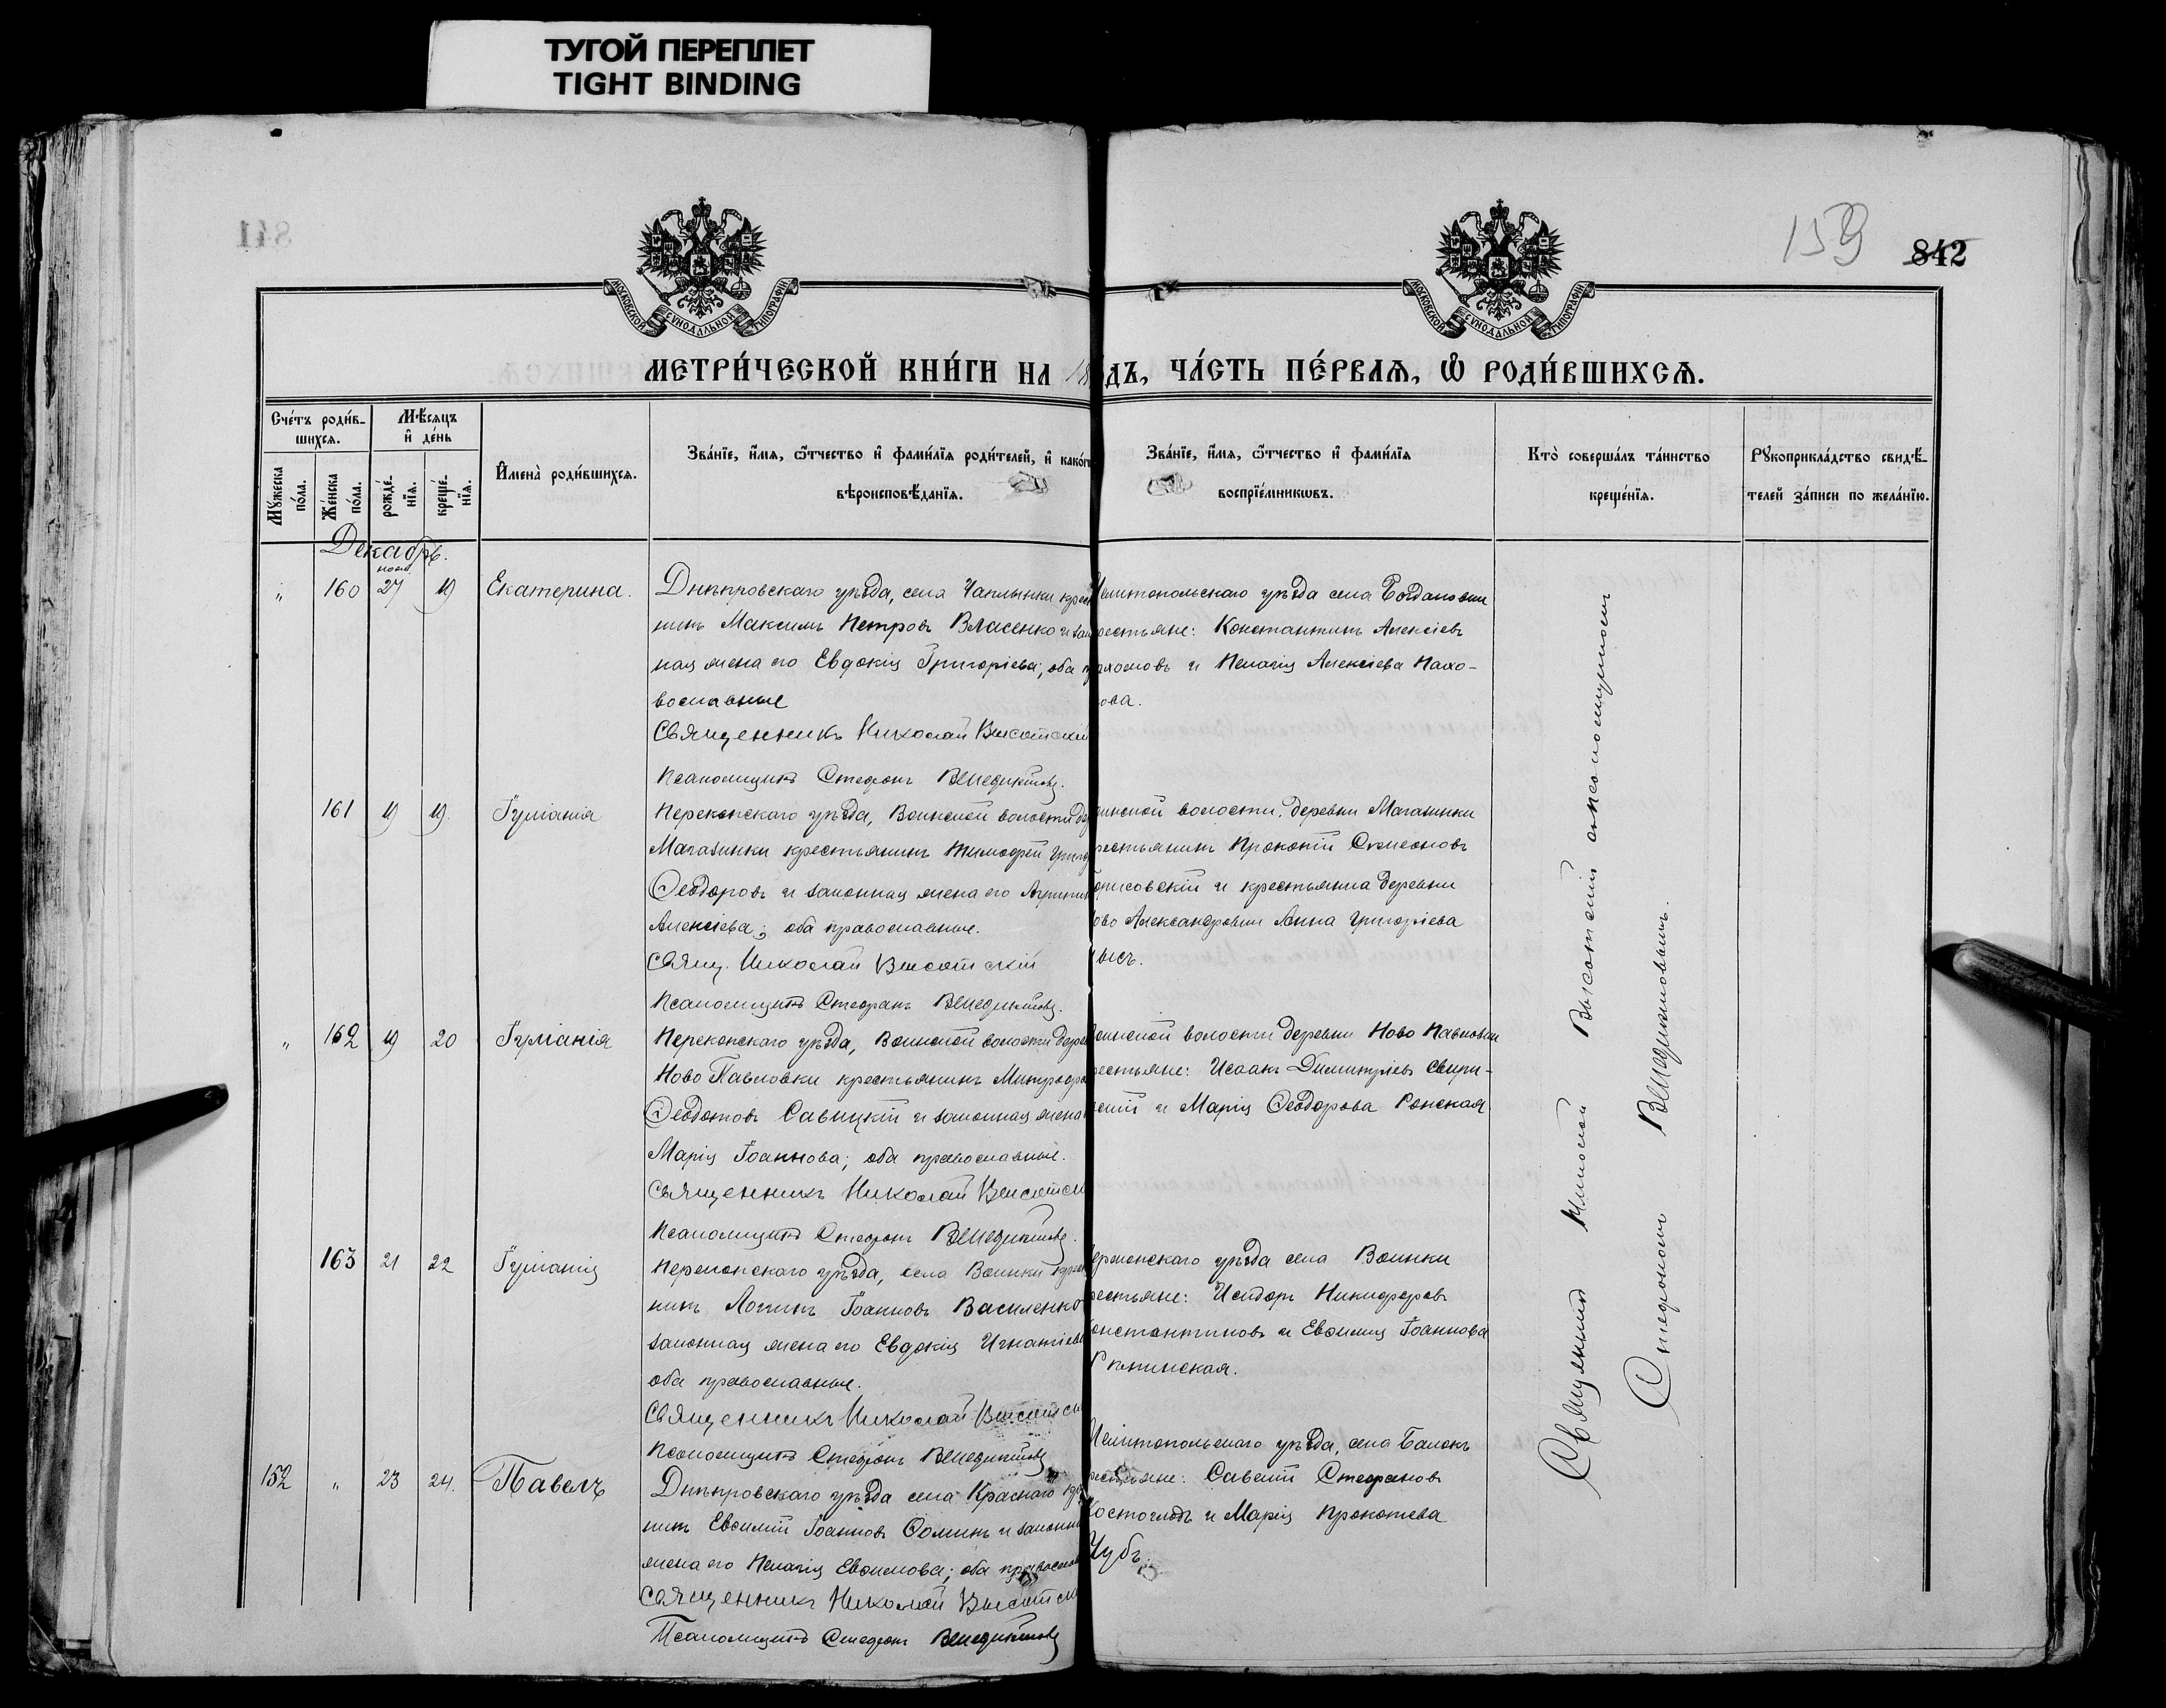 ТУГОЙ ПЕРЕПЛЕТ
TIGHT BINDING
841
159
842
МОСКОВСКОЙ СѴНОДАЛЬНОЙ ТИПОГРАФІИ
МОСКОВСКОЙ СѴНОДАЛЬНОЙ ТИПОГРАФІИ
МЕТРИ́ЧЕСКОЙ КНИ́ГИ НА 18
ДЪ, ЧА́СТЬ ПЕ́РВАѦ, Ѡ РОДИ́ВШИХСѦ.
Сче́тъ роди́в-
шихсѧ.
Мѣ́сѧцъ
и҆ де́нь
Мꙋ́жеска по́ла.
Же́нска по́ла.
рожде́-нїѧ.
креще́-нїѧ.
И҆мена̀ роди́вшихсѧ.
Зва́нїе, и҆́мѧ, ѻ҆́тчество и҆ фами́лїѧ роди́телей, и҆ како́гѡ
вѣроисповѣ́данїѧ.
Зва́нїе, и҆́мѧ, ѻ҆́тчество и҆ фами́лїѧ
воспрїе́мникѡвъ.
Кто̀ соверша́лъ та́инство
креще́нїѧ.
Рꙋкоприкла́дство свидѣ́-
телей за́писи по жела́нїю.
Декабрь.
нояб.
" 160 27 19 Екатерина.
Днѣпровскаго уѣзда, села Чаплынки крест
нинъ Максимъ Петровъ Власенко и зак
ная жена его Евдокія Григоріева; оба п
вославные
Священникъ Николай Высотскій
Псаломщикъ Стефанъ Венедиктовъ.
Мелитопольскаго уѣзда села Богдановки
рестьяне: Константинъ Алексіевъ
ахомовъ и Пелагія Алексіева Пахо-
ова.
161 19 19. Іуліанія
Перекопскаго уѣзда, Воинской волости де
Магазинки крестьянинъ Тимофей Григ
Ѳеодоровъ и законная жена его Агрипин
Алексіева; оба православные.
Свящ. Николай Высотскій
Псаломщикъ Стефанъ Венедиктовъ.
инской волости, деревни Магазинки
рестьянинъ Прокопій Симеоновъ
орисовскій и крестьянка деревни
ово Александровки Анна Григоріева
ысъ.
" 162 19 20 Іуліанія
Перекопскаго уѣзда, Воинской волости дере
Ново Павловки крестьянинъ Митрофа
Ѳеодотовъ Савицкій и законная жена
Марія Іоаннова; оба православные.
Священникъ Николай Высотск
Псаломщикъ Стефанъ Венедиктовъ.
оинской волости деревни Ново Павловки
рестьяне: Исаакъ Димитріевъ Свири-
и Марія Ѳеодорова Ронская
163 21 22 Іуліанія
Перекопскаго уѣзда, села Воинки крест
нинъ Логгинъ Іоанновъ Василенко
законная жена его Евдокія Игнатіев
оба православные.
Священникъ Николай Высотск
Псаломщикъ Стефанъ Венедиктовъ
ерекопскаго уѣзда села Воинки
рестьяне: Исидоръ Никифоровъ
онстантиновъ и Евѳимія Іоаннова
152 " 23 24. Павелъ
Днѣпровскаго уѣзда села Краснаго кр
нинъ Евѳимій Іоанновъ Ѳоминъ и законн
жена его Пелагія Евѳимова; оба православн
Священникъ Николай Высотск
Псаломщикъ Стефанъ Венедиктовъ
Мелитопольскаго уѣзда, села Балокъ
рестьяне: Савелій Стефановъ
Костоглодъ и Марія Прокопіева
Чубъ.
Священникъ Николай Высотскій съ псаломщикомъ
Стефаномъ Венедиктовымъ.